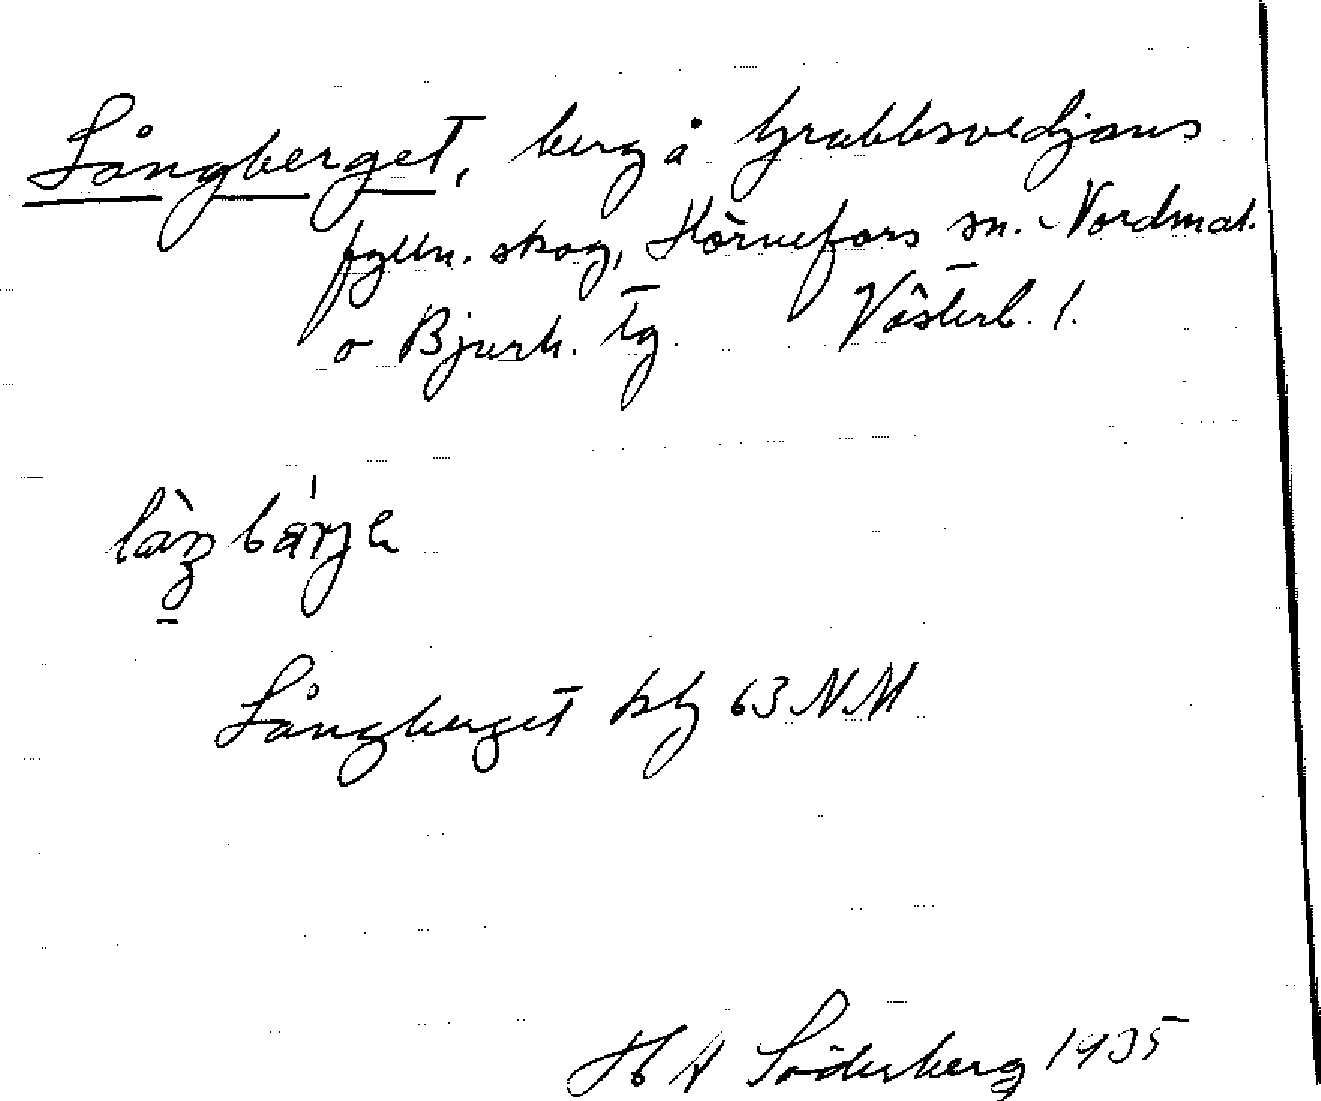 Långberget, berg å Grabbsvedjans
fzlln. skog, Hörnefors sn. Nordmal.
o Bjurh. tg. Västerb. l.
Långberget kbl 63 NM
H A Söderberg 1935